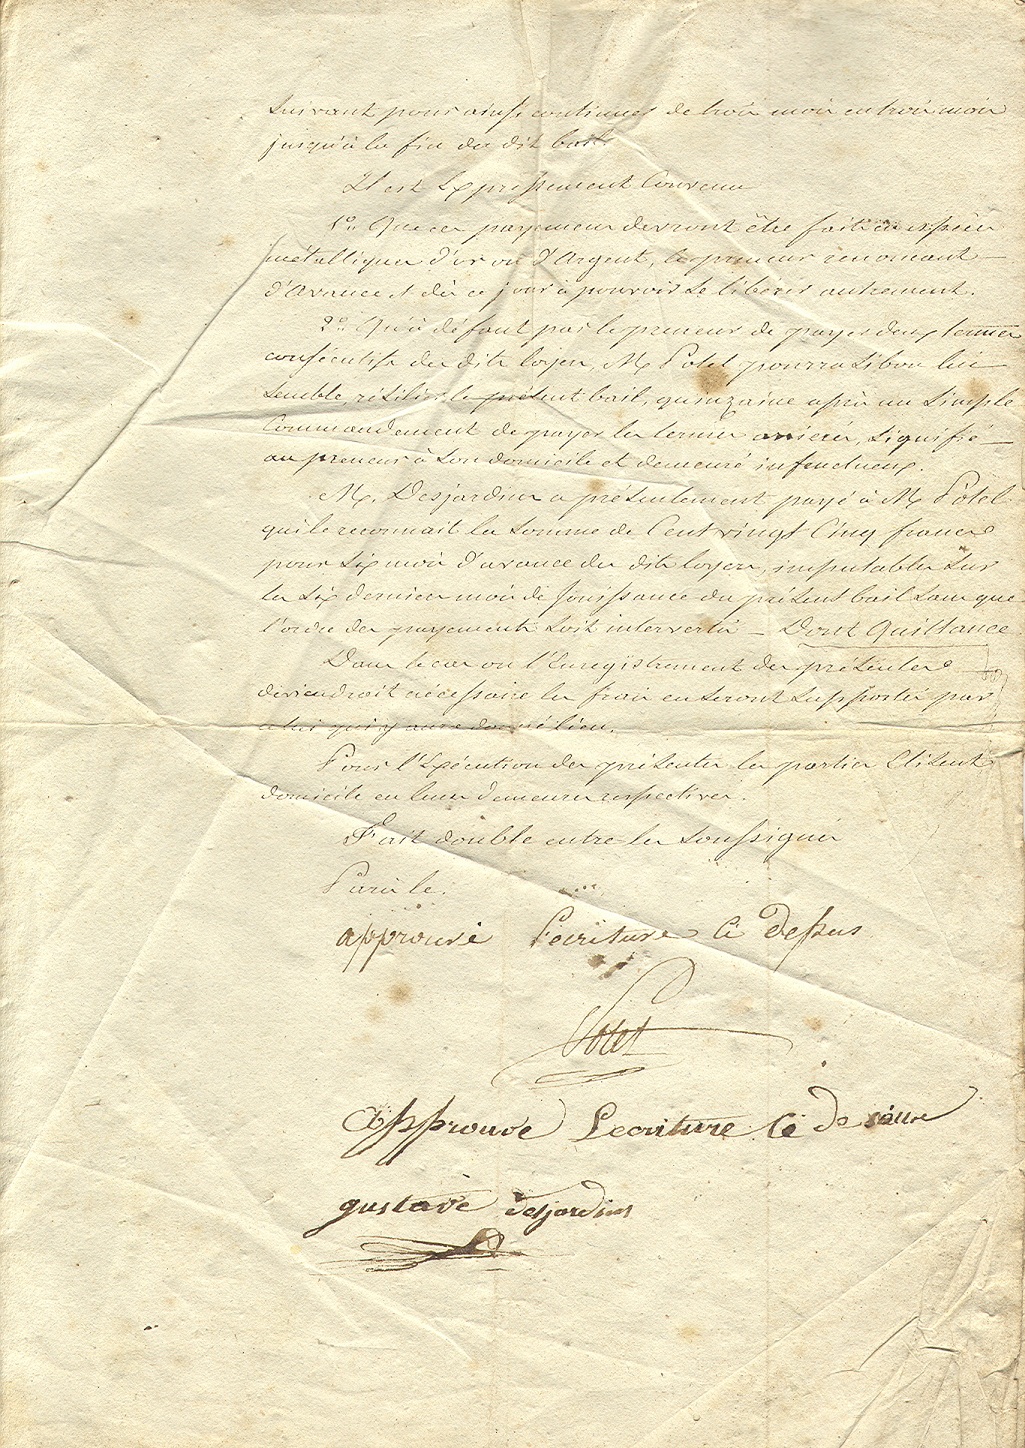 suivant pour ainsi continuer de trois mois en trois mois
jusqu'à la fin du dit bail.
Il est Expressément Convenu
1° Que ces payemens devront être faits en espèces
métalliques d'or ou d'Argent, le preneur renonçant
d'Avance, & dès ce jour à pouvoir se libérer autrement.
2° Qu'à défaut par le preneur de payer deux termes
consécutifs des dits loyers, M. Potel pourra si bon lui
semble, résilier le présent bail, quinzaine après un simple
Commandement de payer les termes arriérés, signifié
au preneur à son domicile et demeuré infructueux.
M. Desjardins a présentement payé à M. Potel
qui le reconnait la somme de Cent vingt Cinq francs
pour six mois d'avance des dits loyers, imputables sur
les six derniers mois de Jouissance du présent bail sans que
l'ordre des payements soit interverti — Dont Quittance
Dans le cas ou l'Enregistrement des présentes
deviendrait nécessaire les frais en seront supportés par
celui qui y aura donné lieu.
Pour l'Exécution des présentes les parties Elisent
domicile en leurs demeures respectives.
Fait double entre les soussignés
Paris le
approuvé l'ecriture ci dessus
Potel
Approuvé Lecriture Ce de séure
gustave desjardins